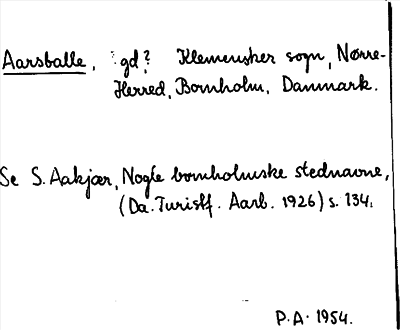 Aarsballe, gd? Klemensker sogn, Nørre-
Herred, Bornholm, Danmark.
Se S. Aakjær, Nogle bornholmske stednavne,
(Da. Turistf. Aarb. 1926) s. 134.
P.A. 1954.